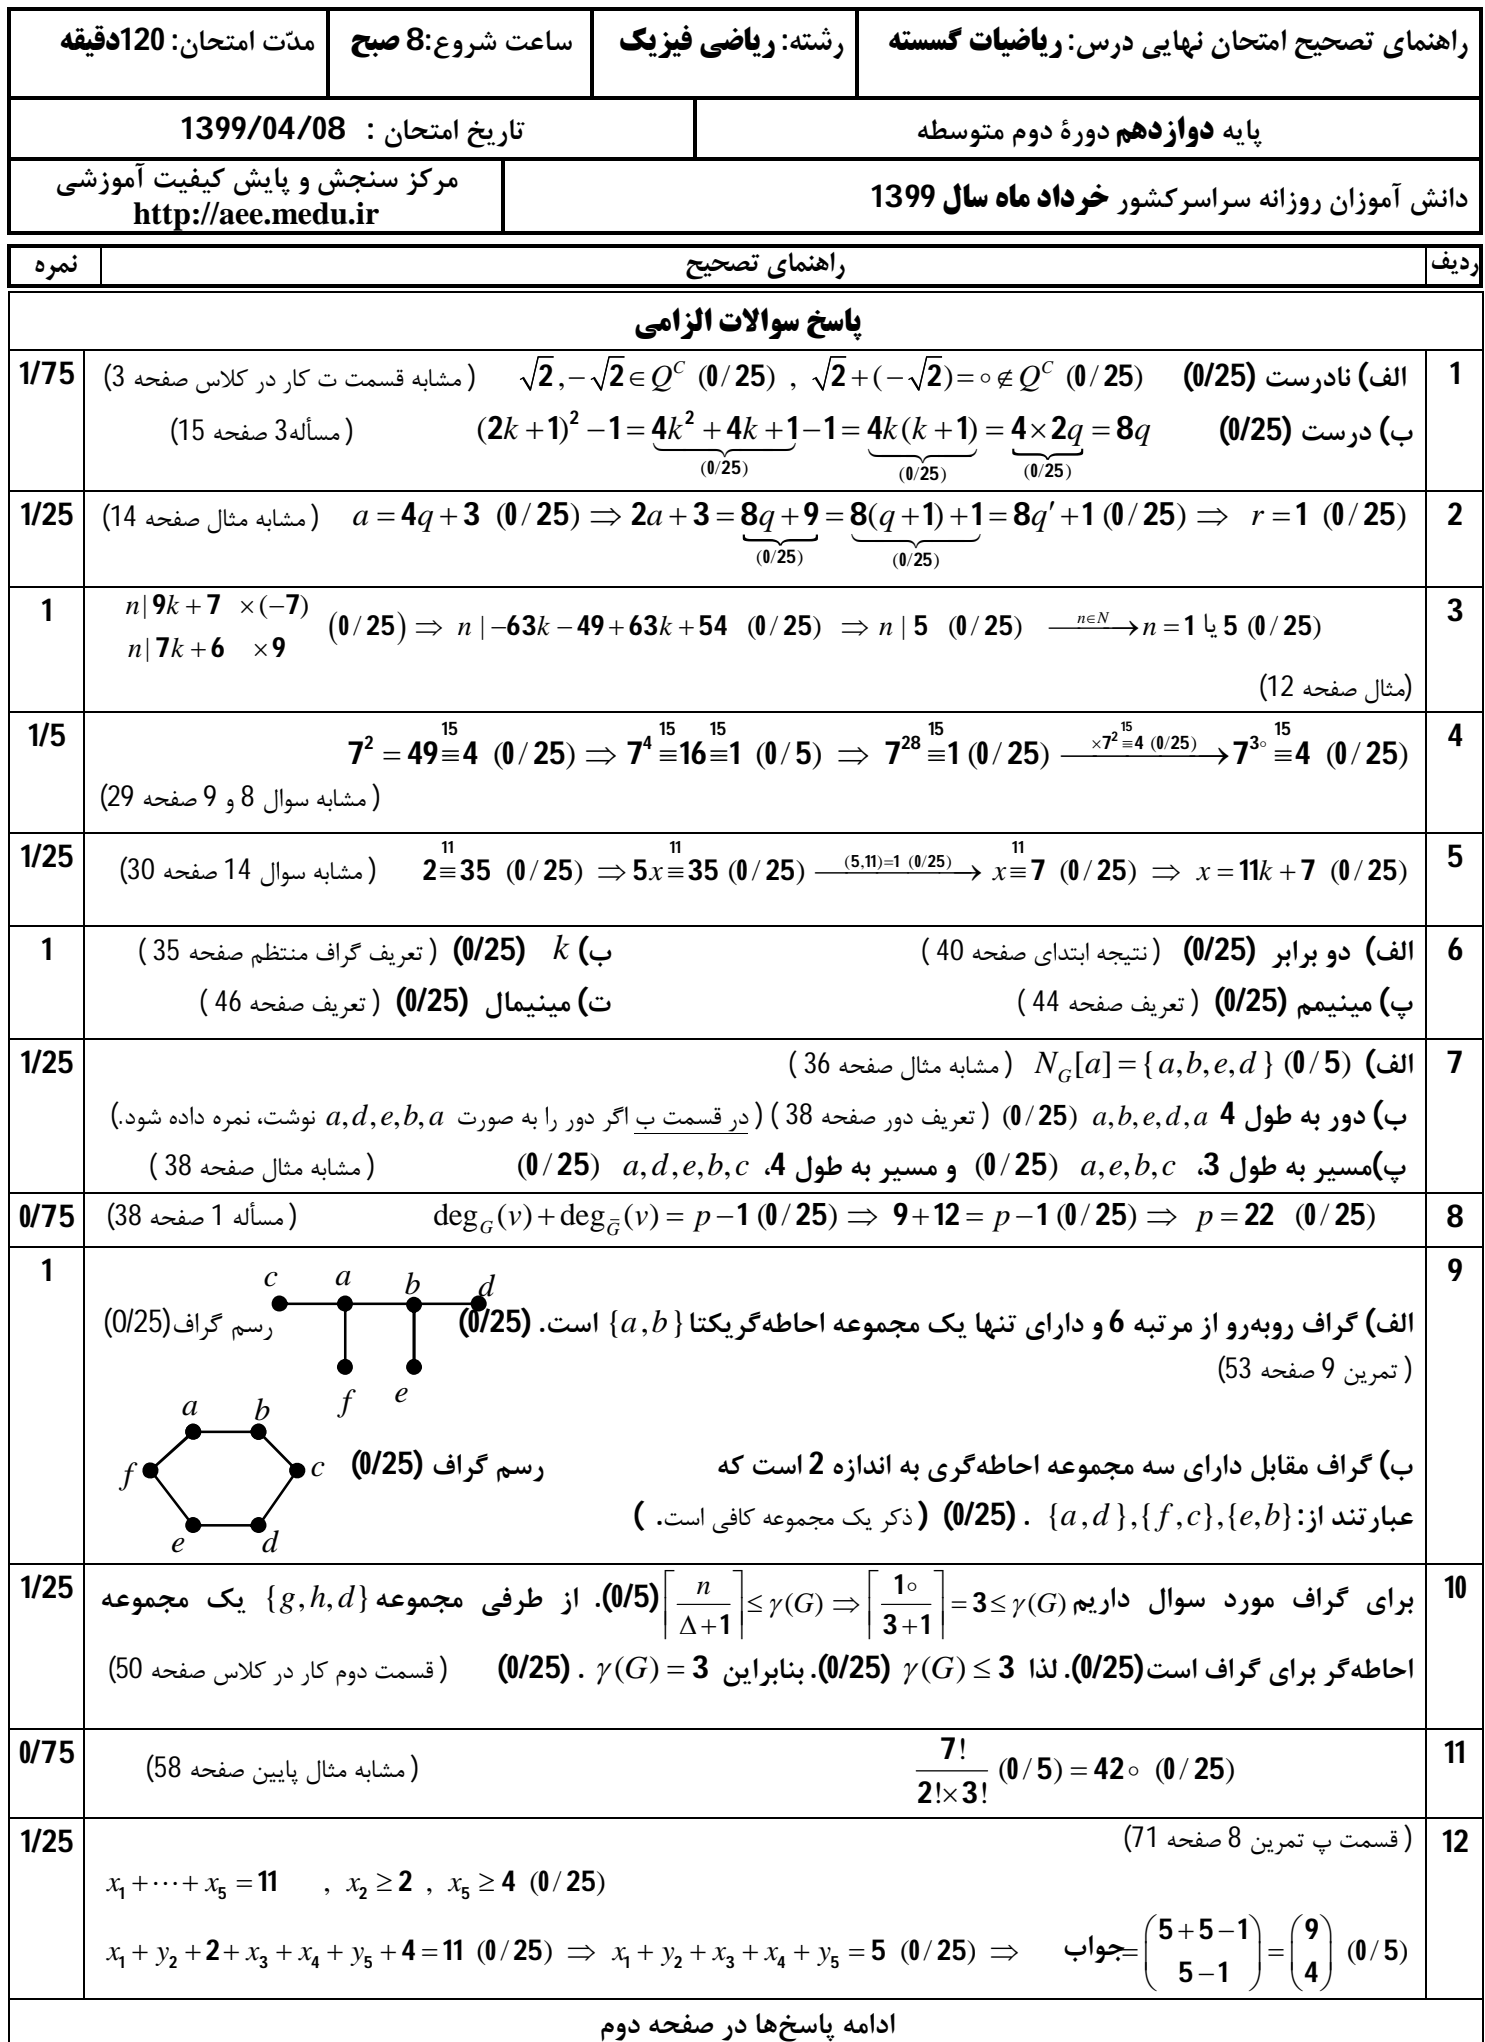 راهنمای تصحیح امتحان نهایی درس: ریاضیات گسسته
رشته: ریاضی فیزیک
ساعت شروع:8 صبح
مدّت امتحان: 120دقیقه
پایه دوازدهم دورۀ دوم متوسطه
تاریخ امتحان : 1399/04/08
دانش آموزان روزانه سراسرکشور خرداد ماه سال 1399
مرکز سنجش و پایش کیفیت آموزشی
http://aee.medu.ir
ردیف راهنمای تصحیح نمره
پاسخ سوالات الزامی
1 الف) نادرست (0/25) √2 , −√2 ∈ Q^C (0/25) , √2 + (−√2) = ∘ ∉ Q^C (0/25) ( مشابه قسمت ت کار در کلاس صفحه 3) 1/75
ب) درست (0/25) (2k+1)² − 1 = 4k² + 4k + 1 − 1 = 4k(k+1) = 4×2q = 8q ( مسأله3 صفحه 15)
(0/25) (0/25) (0/25)
2 a = 4q + 3 (0/25) ⇒ 2a + 3 = 8q + 9 = 8(q+1) + 1 = 8q′ + 1 (0/25) ⇒ r = 1 (0/25) ( مشابه مثال صفحه 14) 1/25
(0/25) (0/25)
3 n | 9k + 7 ×(−7) 1
n | 7k + 6 ×9 (0/25) ⇒ n | −63k − 49 + 63k + 54 (0/25) ⇒ n | 5 (0/25) —n∈N→ n = 1 یا 5 (0/25)
(مثال صفحه 12)
4 7² = 49 ≡¹⁵ 4 (0/25) ⇒ 7⁴ ≡¹⁵ 16 ≡¹⁵ 1 (0/5) ⇒ 7²⁸ ≡¹⁵ 1 (0/25) —×7² ≡¹⁵ 4 (0/25)→ 7^3∘ ≡¹⁵ 4 (0/25) 1/5
( مشابه سوال 8 و 9 صفحه 29)
5 2 ≡¹¹ 35 (0/25) ⇒ 5x ≡¹¹ 35 (0/25) —(5,11)=1 (0/25)→ x ≡¹¹ 7 (0/25) ⇒ x = 11k + 7 (0/25) ( مشابه سوال 14 صفحه 30) 1/25
6 الف) دو برابر (0/25) ( نتیجه ابتدای صفحه 40 ) ب) k (0/25) ( تعریف گراف منتظم صفحه 35 ) 1
پ) مینیمم (0/25) ( تعریف صفحه 44 ) ت) مینیمال (0/25) ( تعریف صفحه 46 )
7 الف) N_G[a] = {a,b,e,d} (0/5) ( مشابه مثال صفحه 36 ) 1/25
ب) دور به طول 4 a,b,e,d,a (0/25) ( تعریف دور صفحه 38 ) ( در قسمت ب اگر دور را به صورت a,d,e,b,a نوشت، نمره داده شود.)
پ)مسیر به طول 3، a,e,b,c (0/25) و مسیر به طول 4، a,d,e,b,c (0/25) ( مشابه مثال صفحه 38 )
8 deg_G(v) + deg_Ḡ(v) = p − 1 (0/25) ⇒ 9 + 12 = p − 1 (0/25) ⇒ p = 22 (0/25) ( مسأله 1 صفحه 38) 0/75
9 1
c a b d
الف) گراف روبه‌رو از مرتبه 6 و دارای تنها یک مجموعه احاطه‌گریکتا {a,b} است. (0/25) رسم گراف(0/25)
( تمرین 9 صفحه 53)
f e
a b
ب) گراف مقابل دارای سه مجموعه احاطه‌گری به اندازه 2 است که رسم گراف (0/25) c f
عبارتند از: {a,d},{f,c},{e,b} . (0/25) ( ذکر یک مجموعه کافی است. )
e d
10 برای گراف مورد سوال داریم ⌈n/(Δ+1)⌉ ≤ γ(G) ⇒ ⌈1∘/(3+1)⌉ = 3 ≤ γ(G) (0/5). از طرفی مجموعه {g,h,d} یک مجموعه 1/25
احاطه‌گر برای گراف است(0/25). لذا γ(G) ≤ 3 (0/25). بنابراین γ(G) = 3 . (0/25) ( قسمت دوم کار در کلاس صفحه 50)
11 7!/(2!×3!) (0/5) = 42∘ (0/25) ( مشابه مثال پایین صفحه 58) 0/75
12 ( قسمت پ تمرین 8 صفحه 71) 1/25
x₁ + ⋯ + x₅ = 11 , x₂ ≥ 2 , x₅ ≥ 4 (0/25)
x₁ + y₂ + 2 + x₃ + x₄ + y₅ + 4 = 11 (0/25) ⇒ x₁ + y₂ + x₃ + x₄ + y₅ = 5 (0/25) ⇒ جواب = (5+5−1 / 5−1) = (9 / 4) (0/5)
ادامه پاسخ‌ها در صفحه دوم